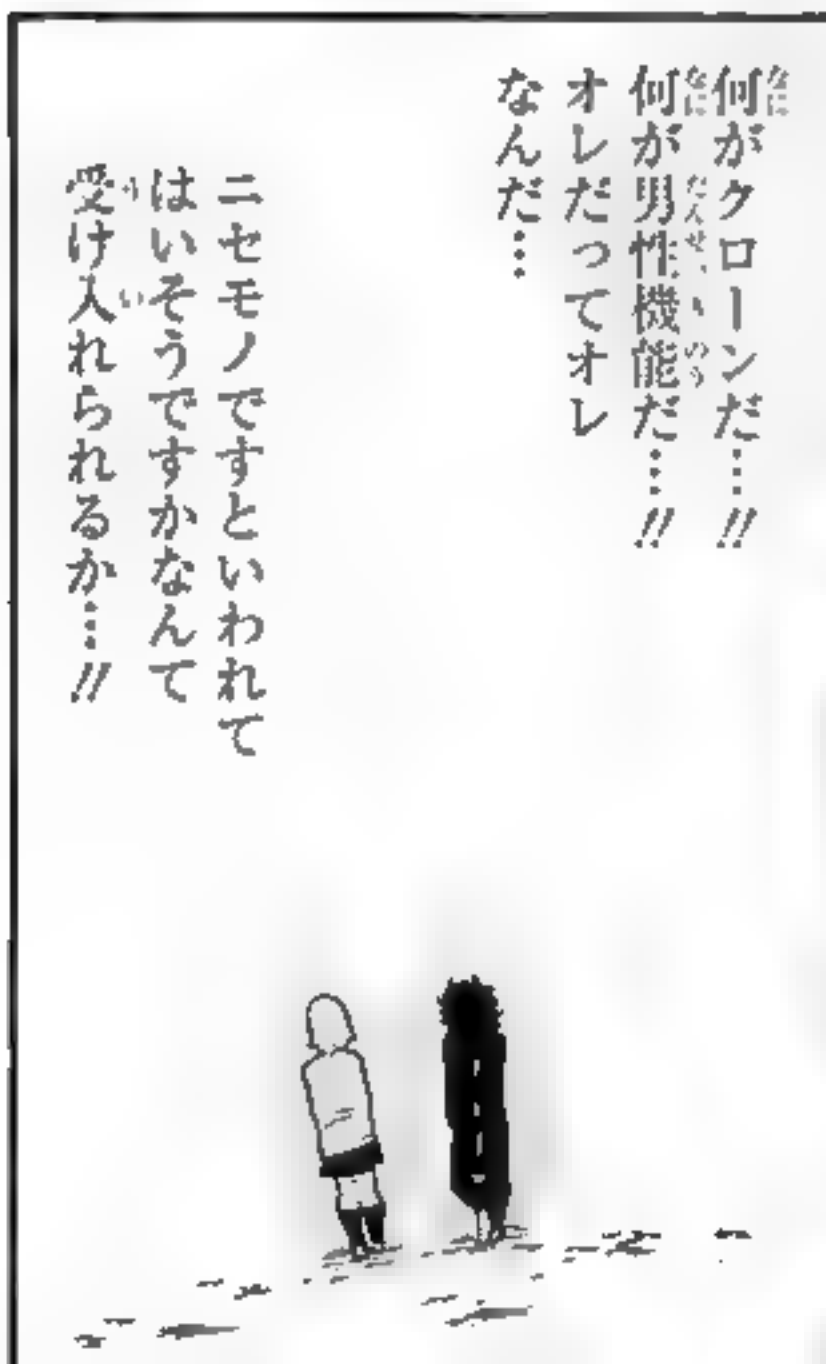 何がクローンだ…!!
何が男性機能だ…!!
オレだってオレ
なんだ…
ニセモノですといわれて
はいそうですかなんて
受け入れられるか…!!